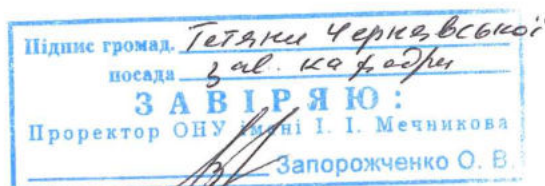 Підпис громад. Тетяни Чернявської
посада зав. кафедри
ЗАВІРЯЮ:
Проректор ОНУ імені І. І. Мечникова
Запорожченко О. В.